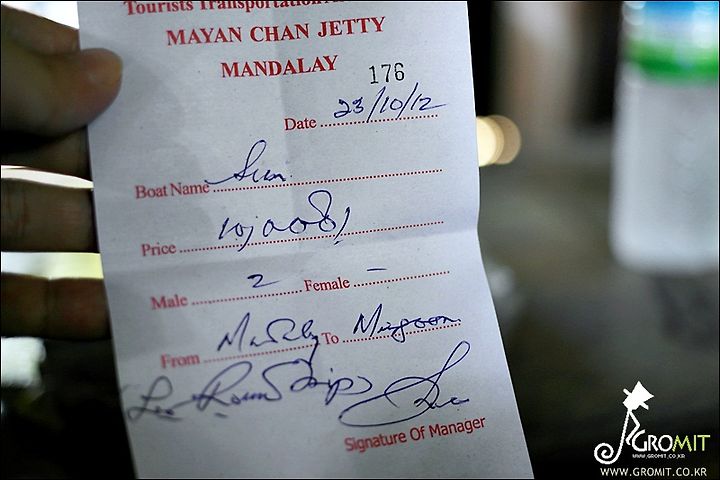 Tourists Transportation
MAYAN CHAN JETTY
MANDALAY
176
Date 23/10/12
Boat Name Sun
Price 10,000/
Male 2 Female –
From To Mingoon
Round Trip
Signature Of Manager
GROMIT
WWW.GROMIT.CO.KR
WWW.GROMIT.CO.KR